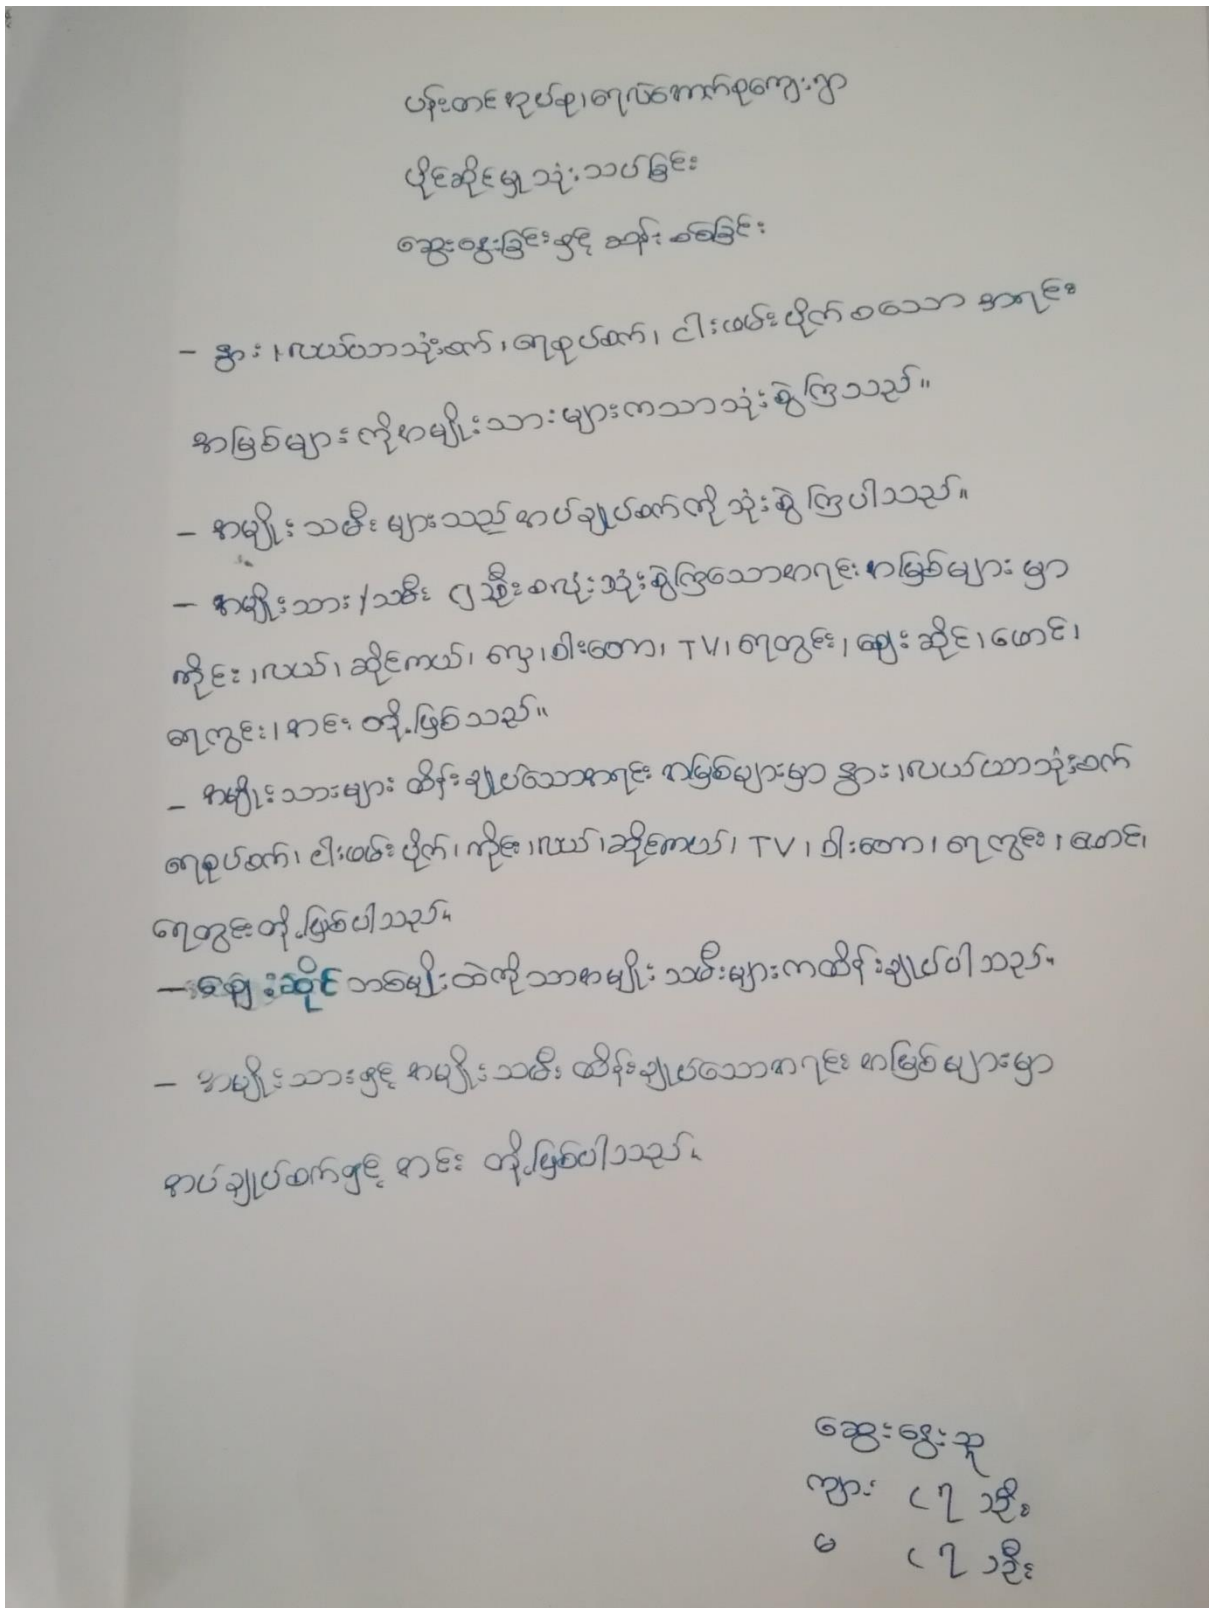 ပန်းတင်အုပ်စု၊ရေလဲအောက်စုကျေးရွာ
ပိုင်ဆိုင်မှု သုံးသပ်ခြင်း
ဆွေးနွေးခြင်းနှင့် ဆန်းစစ်ခြင်း
- နွား၊လယ်ယာသုံးစက်၊ရေစုပ်စက်၊ ငါးဖမ်းပိုက်စသော အရင်း
အမြစ်များကိုအမျိုးသားများကသာသုံးစွဲကြသည်။
- အမျိုးသမီးများသည်အပ်ချုပ်စက်ကိုသုံးစွဲကြပါသည်။
- အမျိုးသား/သမီး ၂ဦးစလုံးသုံးစွဲကြသောအရင်းအမြစ်များမှာ
ကိုင်း၊လယ်၊ဆိုင်ကယ်၊ လှေ၊ဝါးတော၊ TV၊ရေတွင်း၊ဈေးဆိုင်၊ဖောင်၊
ရေကွင်း၊အင်း တို့ဖြစ်သည်။
- အမျိုးသားများ ထိန်းချုပ်သောအရင်းအမြစ်များမှာ နွား၊လယ်ယာသုံးစက်
ရေစုပ်စက်၊ ငါးဖမ်းပိုက်၊ကိုင်း၊လယ်၊ဆိုင်ကယ်၊ TV၊ဝါးတော၊ရေကွင်း၊ဖောင်၊
ရေတွင်းတို့ဖြစ်ပါသည်။
- ဈေးဆိုင်တစ်မျိုးထဲကိုသာအမျိုးသမီးများကထိန်းချုပ်ပါသည်။
- အမျိုးသားနှင့် အမျိုးသမီး ထိန်းချုပ်သောအရင်းအမြစ်များမှာ
အပ်ချုပ်စက်နှင့် အင်း တို့ဖြစ်ပါသည်။
ဆွေးနွေးသူ
ကျား (၇)ဦး
မ (၇)ဦး